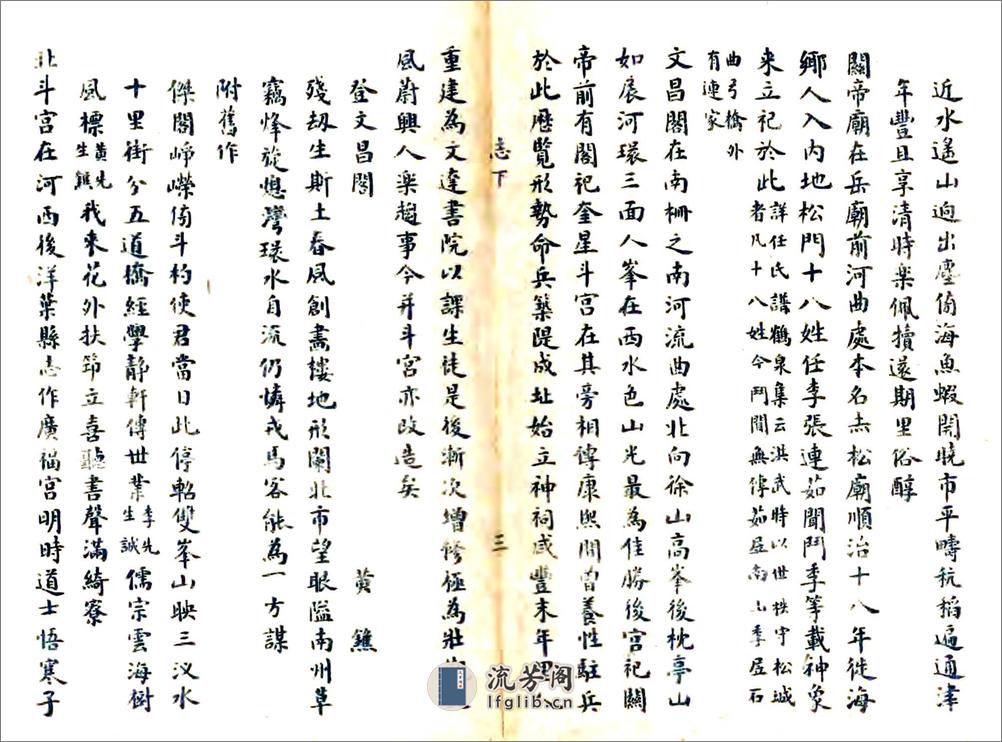 近水遙山迥出塵倚海魚蝦開曉市平疇秔稻遍通津
年豐且享清時樂佩犢遠期里俗醇
關帝廟在岳廟前河曲處本名赤松廟順治十八年徙海
鄉人入內地松門十八姓任李張連茹聞鬥季等載神象
來立祀於此詳任氏譜鶴泉集云洪武時以世秩守松城
者凡十八姓今鬥聞無傳茹居南山季居石
曲弓橋外
有連家
文昌閣在南柵之南河流曲處北向徐山高峯後枕亭山
如展河環三面人峯在西水色山光最為佳勝後宮祀關
帝前有閣祀奎星斗宮在其旁相傳康熙間曾養性駐兵
於此歷覽形勢命兵築隄成址始立神祠咸豐末年
志下
三
重建為文達書院以課生徒是後漸次增修極為壯
風蔚興人樂趨事今并斗宮亦改造矣
登文昌閣 黃鑣
殘刼生斯土春風創畫樓地形闌北市望眼隘南州草
竊烽旋熄灣環水自流仍憐戎馬客能為一方謀
附舊作
傑閣崢嶸倚斗杓使君當日此停軺雙峯山映三汊水
十里街分五道橋經學靜軒傳世業李先生誠儒宗雲海樹
風標黃先生鑣我來花外扶筇立喜聽書聲滿綺寮
北斗宮在河西後洋葉縣志作廣福宮明時道士悟寒子
流芳阁
lfglib.cn